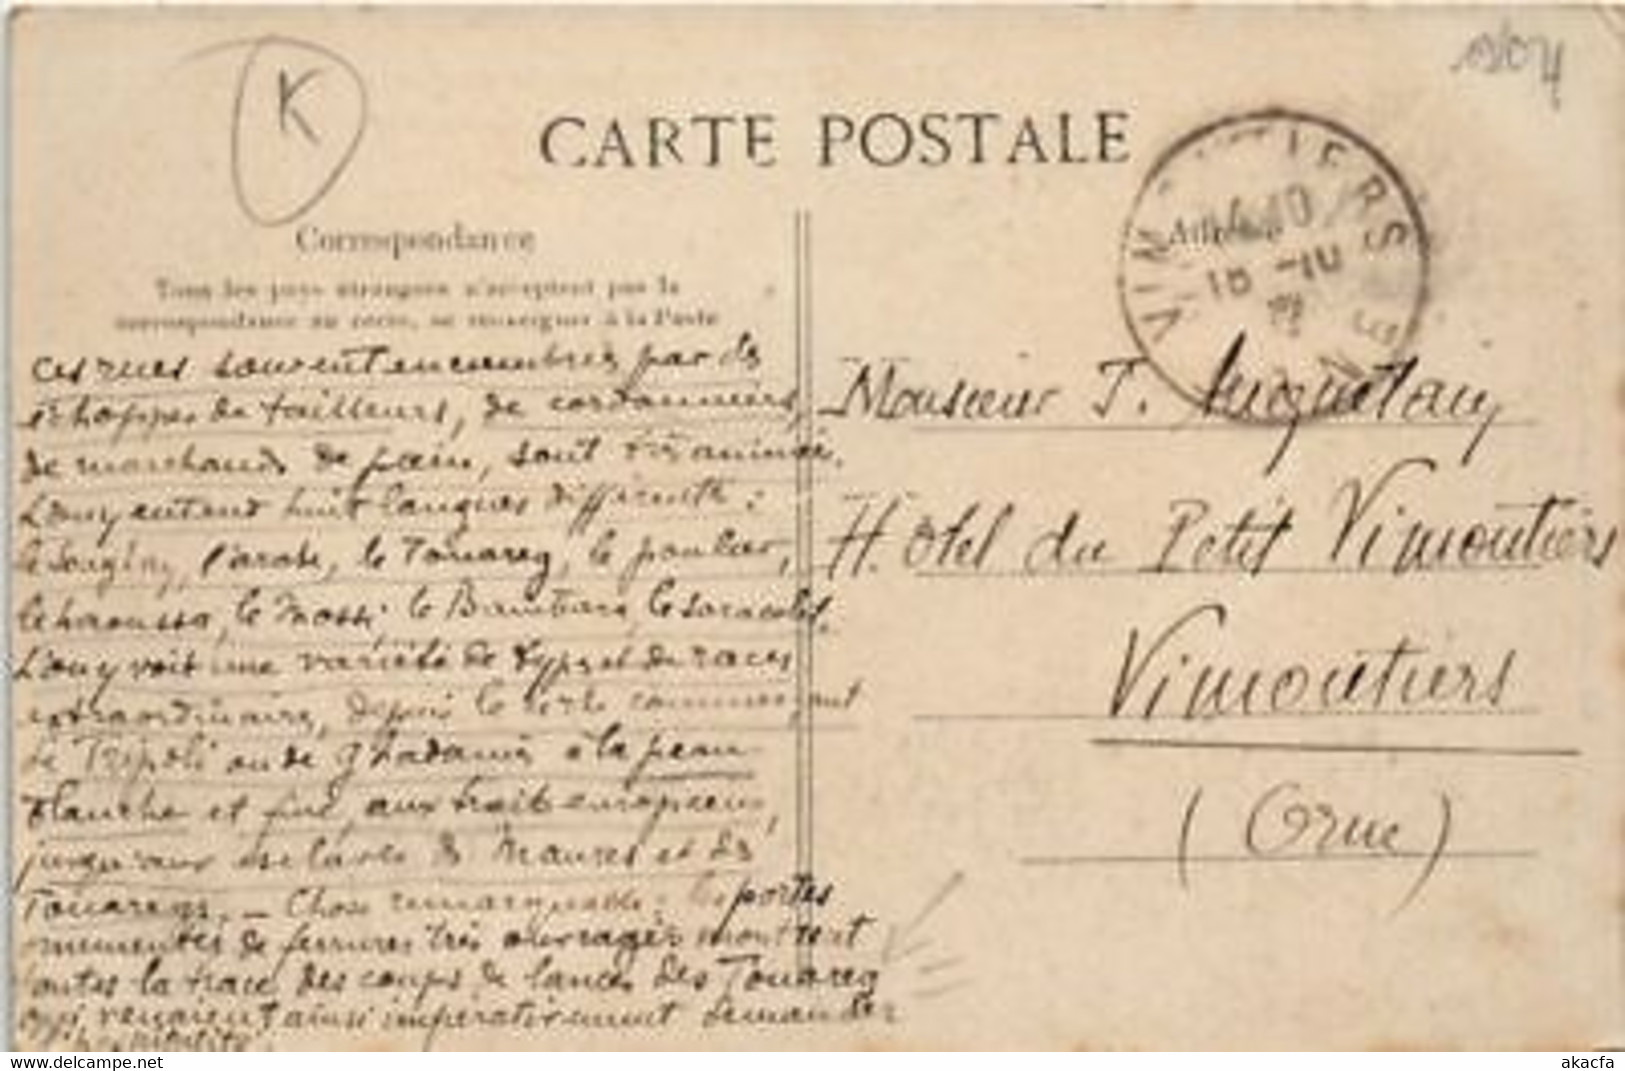 K
CARTE POSTALE
Correspondance
Tous les pays étrangers n'acceptent pas la
correspondance au recto, se renseigner à la Poste
VIM TIERS
18 -10
ORNE
ces rues souvent encombrées par des
échoppes de tailleurs, de cordonniers,
de marchands de pain, sont très animées.
L'on y entend huit langues différentes :
le Songhay, l'arabe, le Touareg, le poular,
le haoussa, le Mossi, le Bambara, le saracolet.
L'on y voit une variété de types et de races
extraordinaires, depuis le riche commerçant
de Tripoli ou de Ghadamès à la peau
blanche et fine, aux traits européens,
jusqu'aux esclaves des Maures et des
Touaregs. — Chose remarquable : les portes
ornementées de ferrures très ouvragées montrent
toutes la trace des coups de lances des Touareg
qui venaient ainsi impérativement demander
l'hospitalité.
Monsieur J.
Hôtel du Petit Vimoutiers
Vimoutiers
(Orne)
akacfa